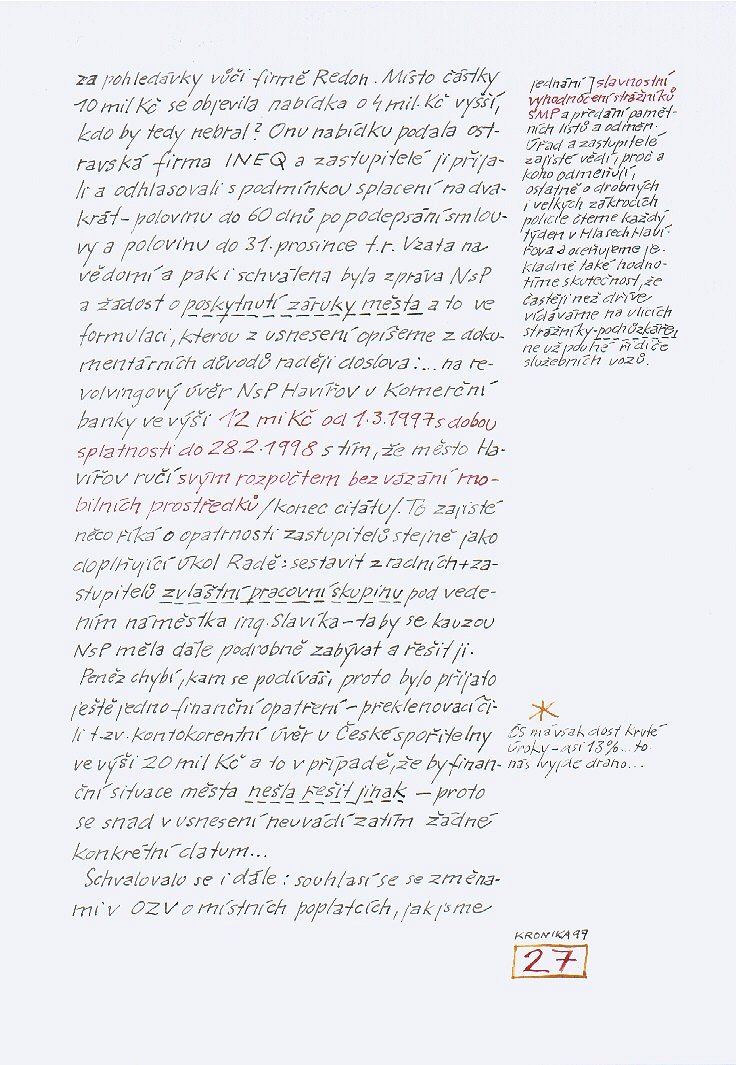 za pohledávky vůči firmě Redon. Místo částky
10 mil Kč se objevila nabídka o 4 mil. Kč vyšší,
kdo by tedy nebral? Onu nabídku podala ost-
ravská firma INEQ a zastupitelé ji přija-
li a odhlasovali s podmínkou splacení nadva-
krát - polovinu do 60 dnů po podepsání smlou-
vy a polovinu do 31. prosince t.r. Vzata na
vědomí a pak i schválena byla zpráva NsP
a žádost o poskytnutí záruky města a to ve
formulaci, kterou z usnesení opíšeme z doku-
mentárních důvodů raději doslova: ... na re-
volvingový úvěr NsP Havířov u Komerční
banky ve výši 12 mi Kč od 1.3.1997 s dobou
splatnosti do 28.2.1998 s tím, že město Ha-
vířov ručí svým rozpočtem bez vázání mo-
bilních prostředků /konec citátu/. To zajisté
něco říká o opatrnosti zastupitelů stejně jako
doplňující úkol Radě: sestavit z radních + za-
stupitelů zvláštní pracovní skupinu pod vede-
ním náměstka ing. Slavíka - ta by se kauzou
NsP měla dále podrobně zabývat a řešit ji.
Peněz chybí, kam se podíváš, proto bylo přijato
ještě jedno finanční opatření - překlenovací či-
li t.zv. kontokorentní úvěr u České spořitelny
ve výši 20 mil Kč a to v případě, že by finan-
ční situace města nešla řešit jinak - proto
se snad v usnesení neuvádí zatím žádné
konkrétní datum...
Schvalovalo se i dále: souhlasí se se změna-
mi v OZV o místních poplatcích, jak jsme
jednání] slavnostní
vyhodnocení strážníků
SMP a předání pamět-
ních listů a odměn.
Úřad a zastupitelé
zajisté vědí, proč a
koho odměňují,
ostatně o drobných
i velkých zákrocích
policie čteme každý
týden v Hlasech Haví-
řova a oceňujeme je.
kladně také hodno-
tíme skutečnost, že
častěji než dříve
vídáváme na ulicích
strážníky - pochůzkáře,
ne už pouhé řidiče
služebních vozů.
*
ČS má však dost kruté
úroky - asi 13% ... to
nás vyjde draho...
KRONIKA 97
27